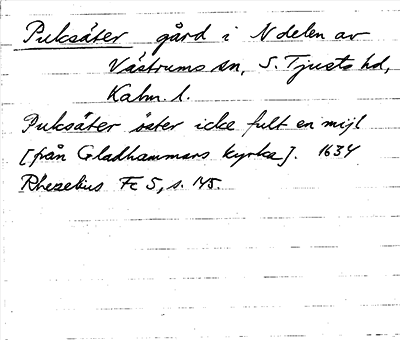 Puksäter gård i N delen av
Västrums sn, S. Tjusts hd,
Kalm. l.
Puksäter öster icke fult en mijl
[från Gladhammars kyrka]. 1634
Rhezelius Fc 5, s. 145.